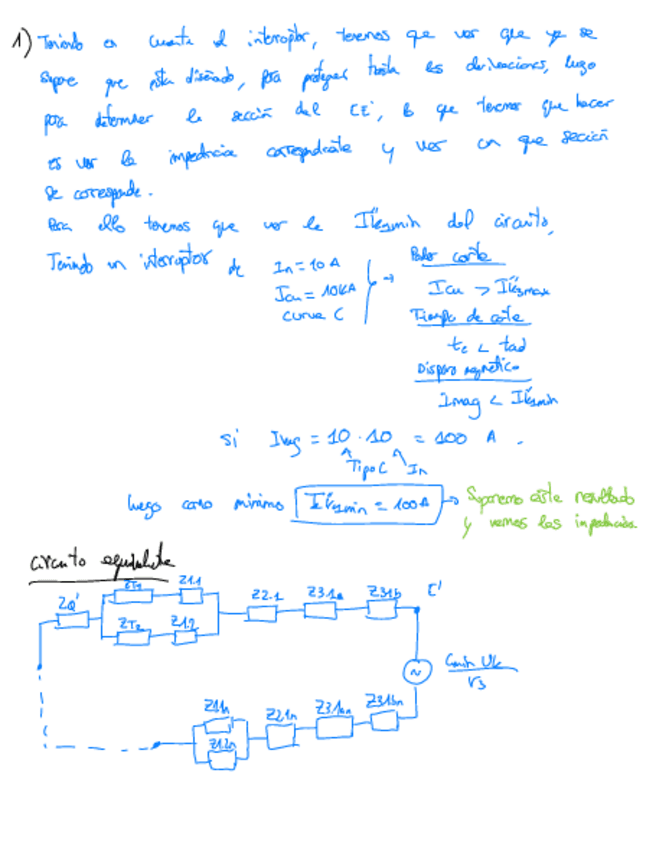 1) Teniendo en cuenta el interruptor, tenemos que ver que ya se
supone que esta diseñado, para proteger hasta las derivaciones, luego
para determinar la sección del CE', lo que tenemos que hacer
es ver la impedancia correspondiente y ver con que sección
se corresponde.
Para ello tenemos que ver la I"k1min del circuito,
Teniendo un interruptor de
In = 10 A
Icu = 10kA
curva C
Poder corte
Icu > I"k3max
Tiempo de corte
tc < tad
Disparo magnético
Imag < I"k1min
Si Imag = 10 · 10 = 100 A.
Tipo C In
luego como mínimo I"k1min = 100A → Suponemos este resultado
y vemos las impedancias.
Circuito equivalente
ZQ' ZT1 Z1.1 Z2.1 Z3.1a Z3.1b C'
ZT2 Z1.2
Cmin Uk
√3
Z11n Z21n Z31an Z31bn
Z12n